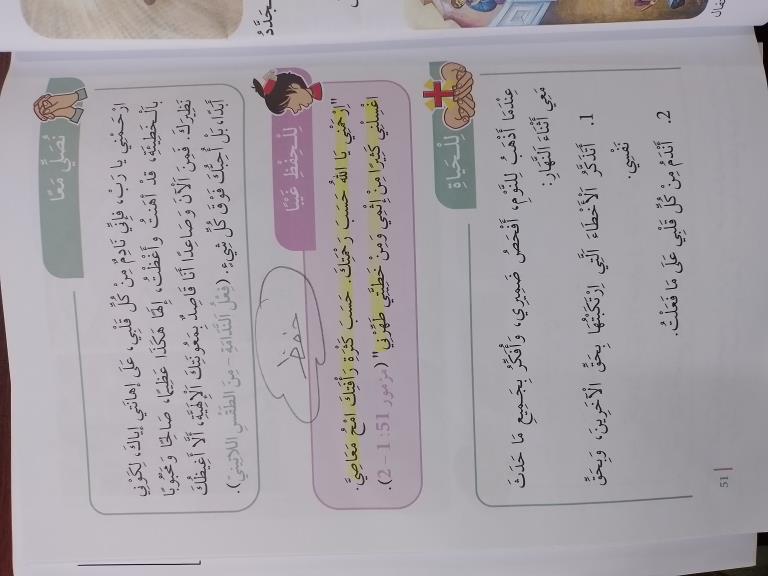 نُصَلِّي مَعًا
اِرْحَمْنِي يا رَبّ، فَإِنِّي نَادِمٌ مِنْ كُلِّ قَلْبِي، عَلَى إِهانَتِي إِيَّاكَ، لِكَوْنِي
بِالْخَطِيئَةِ، قَدْ أَهَنْتُ وَأَغْظْتُ، إِلهًا هَكَذَا عَظِيمًا، صَالِحًا وَمَحْبُوبًا
نَظِيرَكَ. فَمِنَ الْآنَ وَصَاعِدًا أَنَا قَاصِدٌ بِمَعُونَتِكَ الْإِلَهِيَّةِ، أَلَّا أُغِيظُكَ
أَبَدًا، بَلْ أُحِبُّكَ فَوْقَ كُلِّ شَيْءٍ. (فِعْلُ النَّدَامَةِ - مِنَ الطَّقْسِ اللَّاتِينِيّ).
حفظ
لِلْحِفْظِ غَيْبًا
"اِرْحَمْنِي يَا اللهُ حَسَبَ رَحْمَتِكَ. حَسَبَ كَثْرَةِ رَأْفَتِكَ امْحُ مَعَاصِيَّ.
اغْسِلْنِي كَثِيرًا مِنْ إِثْمِي وَمِنْ خَطِيَّتِي طَهِّرْنِي" (مزمور 51: 1 – 2).
لِلْحَيَاةِ
عِنْدَمَا أَذْهَبُ لِلنَّوْمِ، أَفْحَصُ ضَمِيرِي، وَأُفَكِّرُ بِجَمِيعِ مَا حَدَثَ
مَعِي أَثْنَاءَ النَّهَارِ:
1. أَتَذَكَّرُ الْأَخْطَاءَ الَّتِي اِرْتَكَبْتُهَا بِحَقِّ الْآخَرِينَ، وَبِحَقِّ
نَفْسِي.
2. أَنْدَمُ مِنْ كُلِّ قَلْبِي عَلَى مَا فَعَلْتُ.
51